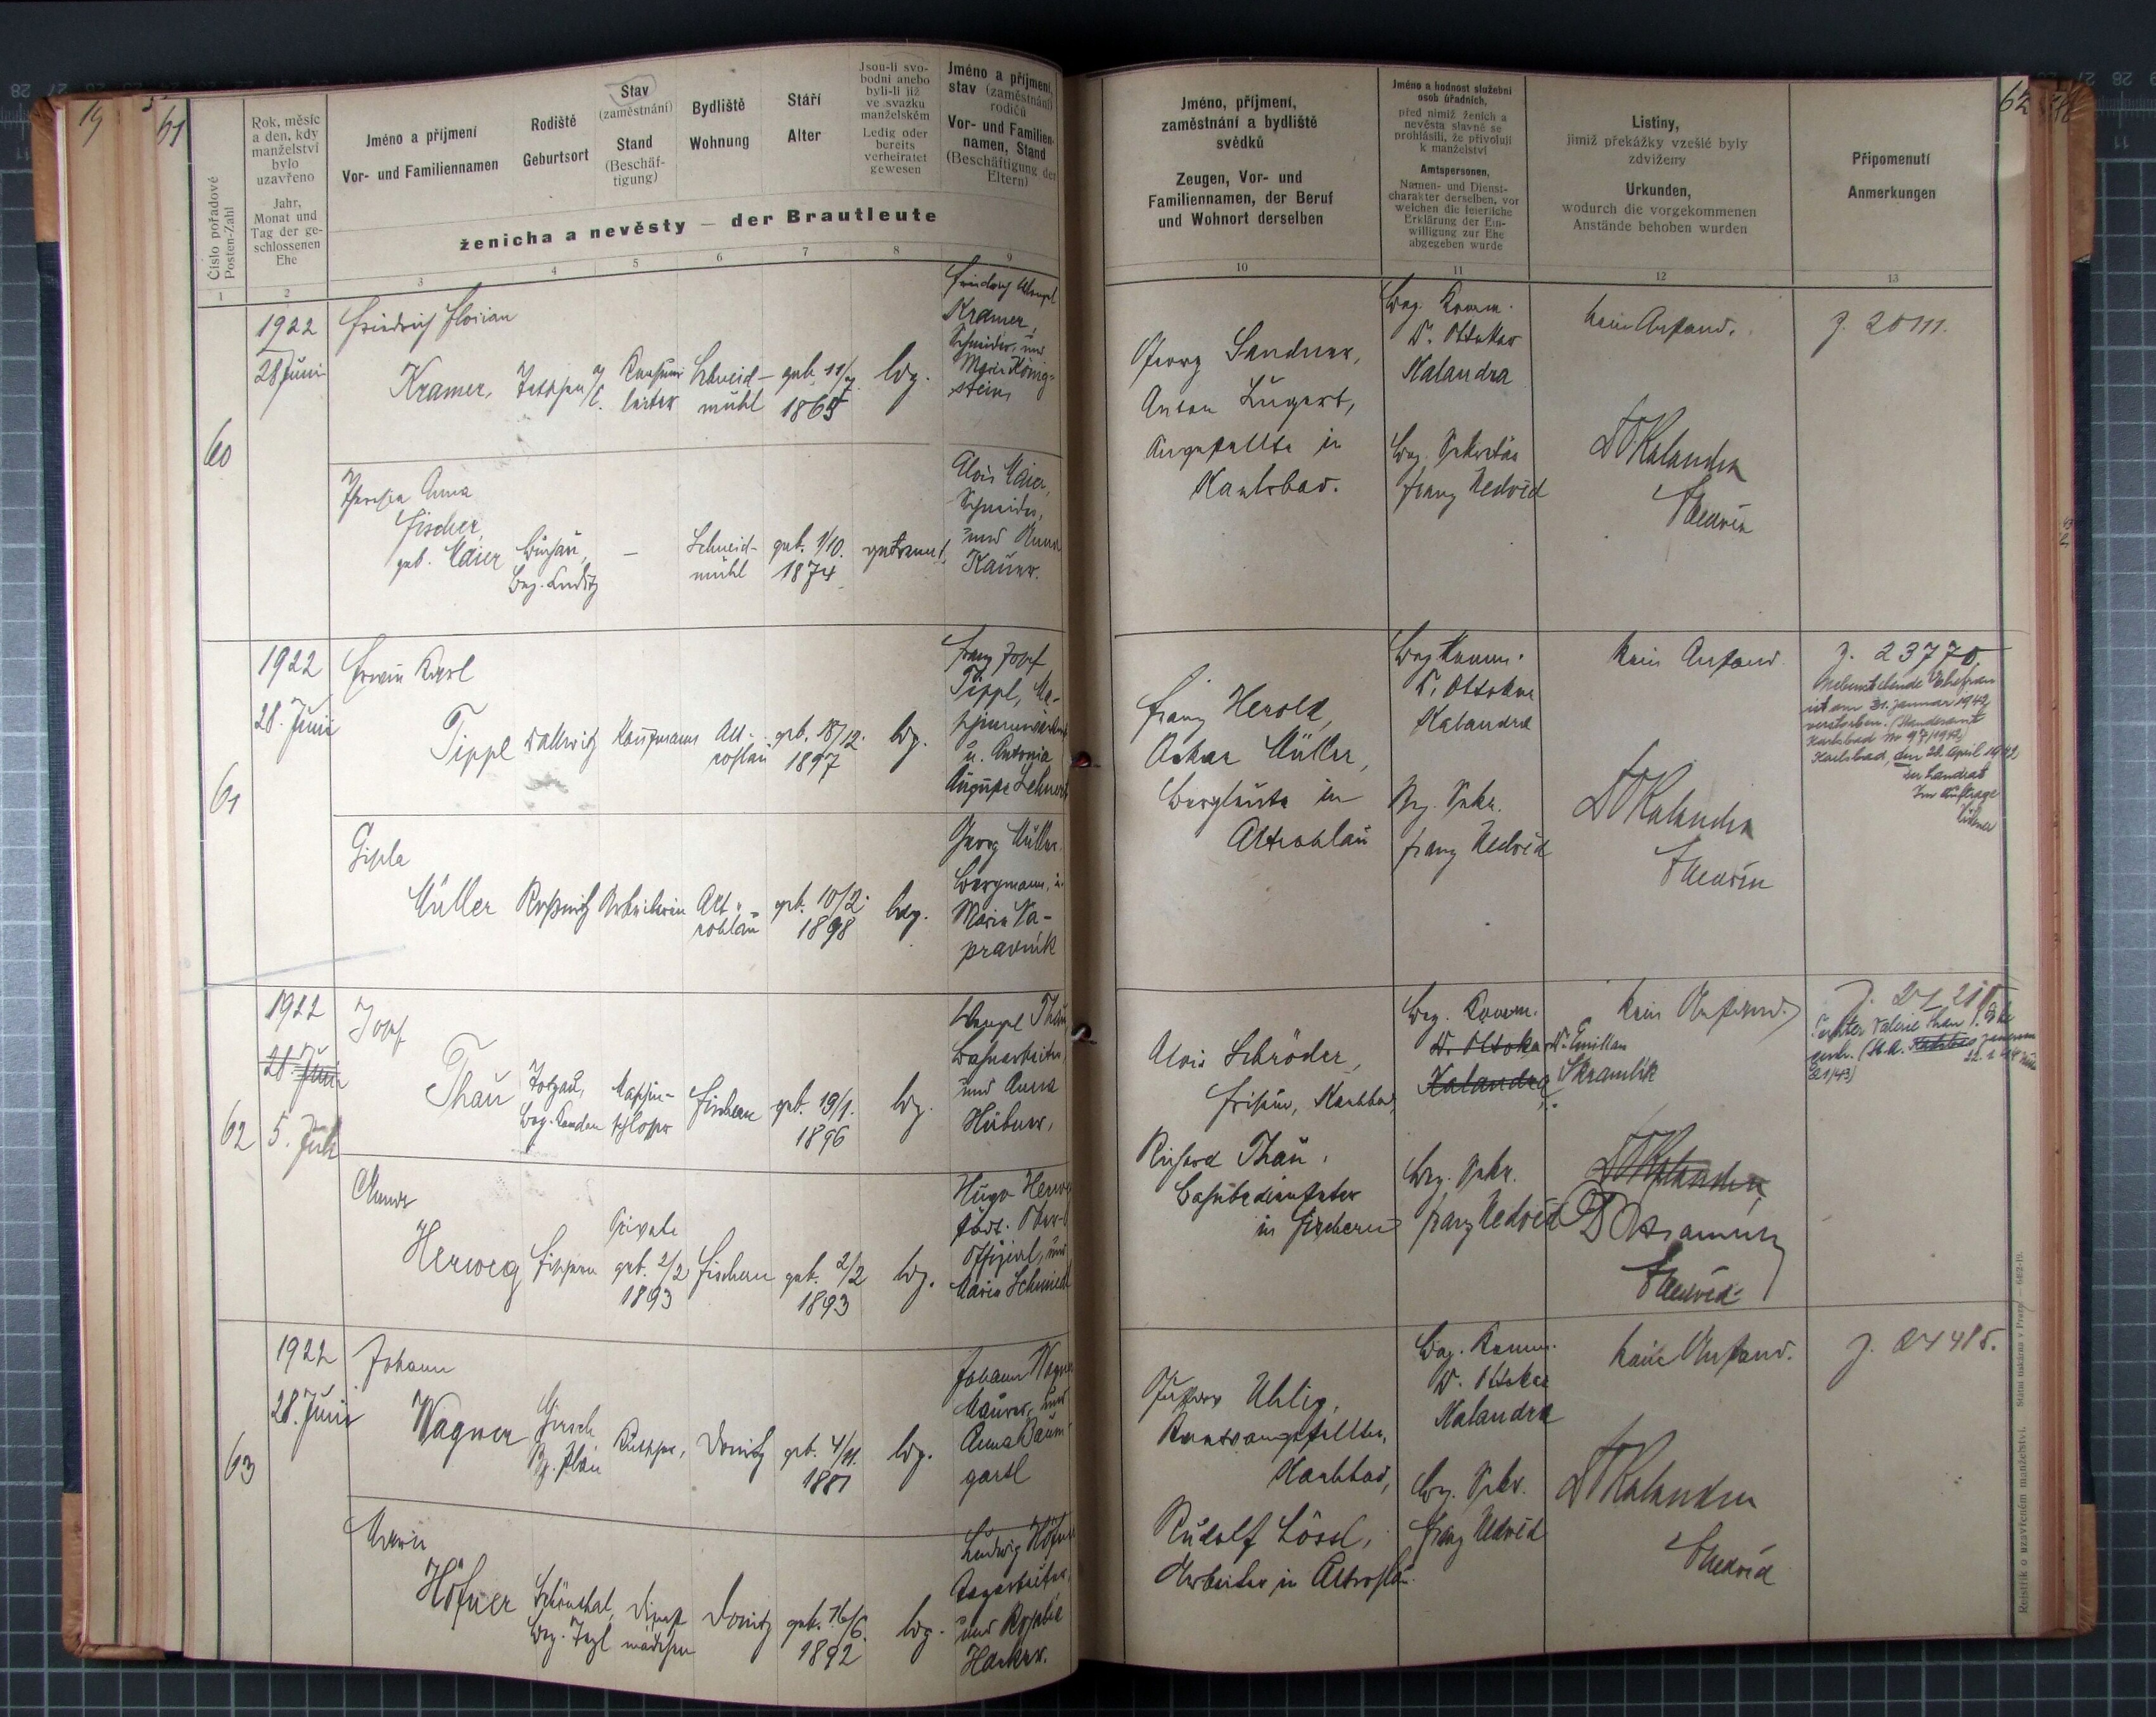 19
61
Číslo pořadové
Posten-Zahl
Rok, měsíc
a den, kdy
manželství
bylo
uzavřeno
Jahr,
Monat und
Tag der ge-
schlossenen
Ehe
Jméno a příjmení
Vor- und Familiennamen
Rodiště
Geburtsort
Stav
(zaměstnání)
Stand
(Beschäf-
tigung)
Bydliště
Wohnung
Stáří
Alter
Jsou-li svo-
bodni anebo
byli-li již
ve svazku
manželském
Ledig oder
bereits
verheiratet
gewesen
Jméno a příjmení,
stav (zaměstnání)
rodičů
Vor- und Familien-
namen, Stand
(Beschäftigung der
Eltern)
ženicha a nevěsty — der Brautleute
1 2 3 4 5 6 7 8 9
60
1922
28 Juni
Friedrich Florian
Kramer,
Schneid-
mühl
geb. 11/7.
1865
ldg.
Kramer,
Schneider, und
Marie König-
stein
Theresia Anna
Fischer,
geb. Maier
Buchau,
Bez. Luditz
—
Schneid-
mühl
geb. 1/10.
1874
getrennt.
Alois Maier,
Schneider,
und Anna
Kauer.
61
1922
28. Juni
Erwin Karl
Tippl
Dallwitz
Kaufmann
Alt-
rohlau
geb. 18/12.
1897
ldg.
Franz Josef
Tippl,
u. Antonia
Auguste Lehnert
Gisela
Müller
Roßnitz
Arbeiterin
Alt-
rohlau
geb. 10/2.
1898
ldg.
Georg Müller
Bergmann, u.
Marie Na-
pravnik
62
1922
28 Juni
5. Juli
Josef
Thau
Bez. Kaaden
Maschin-
schlosser
Fischern
geb. 19/1.
1896
ldg.
Wenzel Thau
Bahnarbeiter,
und Anna
Hübner,
Herweg
Fischern
Private
geb. 2/2
1893
Fischern
geb. 2/2
1893
ldg.
Hugo Herweg
städt. Ober-
Offizial, und
Marie Schmied
63
1922
28. Juni
Johann
Wagner
Hirsch
Bz. Plan
Donitz
geb. 4/11.
1881
ldg.
Johann Wagner
Maurer, und
Anna Baum
gartl
Marie
Höfner
Schönthal,
Bez. Tepl
Dienst
mädchen
Donitz
geb. 16/6.
1892
ldg.
Ludwig Höfner
Tagarbeiter,
und Rosalie
Hacker.
62
Jméno, příjmení,
zaměstnání a bydliště
svědků
Zeugen, Vor- und
Familiennamen, der Beruf
und Wohnort derselben
Jméno a hodnost služební
osob úředních,
před nimiž ženich a
nevěsta slavně se
prohlásili, že přivolují
k manželství
Amtspersonen,
Namen- und Dienst-
charakter derselben, vor
welchen die feierliche
Erklärung der Ein-
willigung zur Ehe
abgegeben wurde
Listiny,
jimiž překážky vzešlé byly
zdviženy
Urkunden,
wodurch die vorgekommenen
Anstände behoben wurden
Připomenutí
Anmerkungen
10 11 12 13
Georg Sandner,
Anton Lugert,
Angestellte in
Karlsbad.
Bez. Komm.
Dr. Ottokar
Kalandra
Bez. Sekretär
Franz Nedvěd
kein Anstand.
Dr Kalandra
Z. 20111.
Franz Herold,
Oskar Müller,
Bergleute in
Altrohlau
Bez Komm.
Dr. Ottokar
Kalandra
Bez. Sekr.
Franz Nedvěd
kein Anstand
Dr Kalandra
Z. 23770.
Nebenstehende Ehefrau
ist am 31. Januar 1942
verstorben. (Standesamt
Karlsbad Nr 97/1942)
Karlsbad, den 28. April 1942
Der Landrat
Im Auftrage
Alois Schröder,
Friseur, Karlsbad,
Richard Thau,
Bahnbediensteter
in Fischern
Bez. Komm.
Dr. Ottokar
Kalandra
Dr. Emilian
Skramlik
Bez. Sekr.
Franz Nedvěd
kein Anstand.
Dr Kalandra
Nedvěd
Tochter Valerie Thau
Gustav Uhlig,
Karlsbad,
Rudolf Lössl,
Arbeiter in Altrohlau.
Bez. Komm.
Dr. Ottokar
Kalandra
Bez. Sekr.
Franz Nedvěd
kein Anstand.
Dr Kalandra
Nedvěd
Z. 24485.
Rejstřík o uzavřeném manželství. Státní tiskárna v Praze.